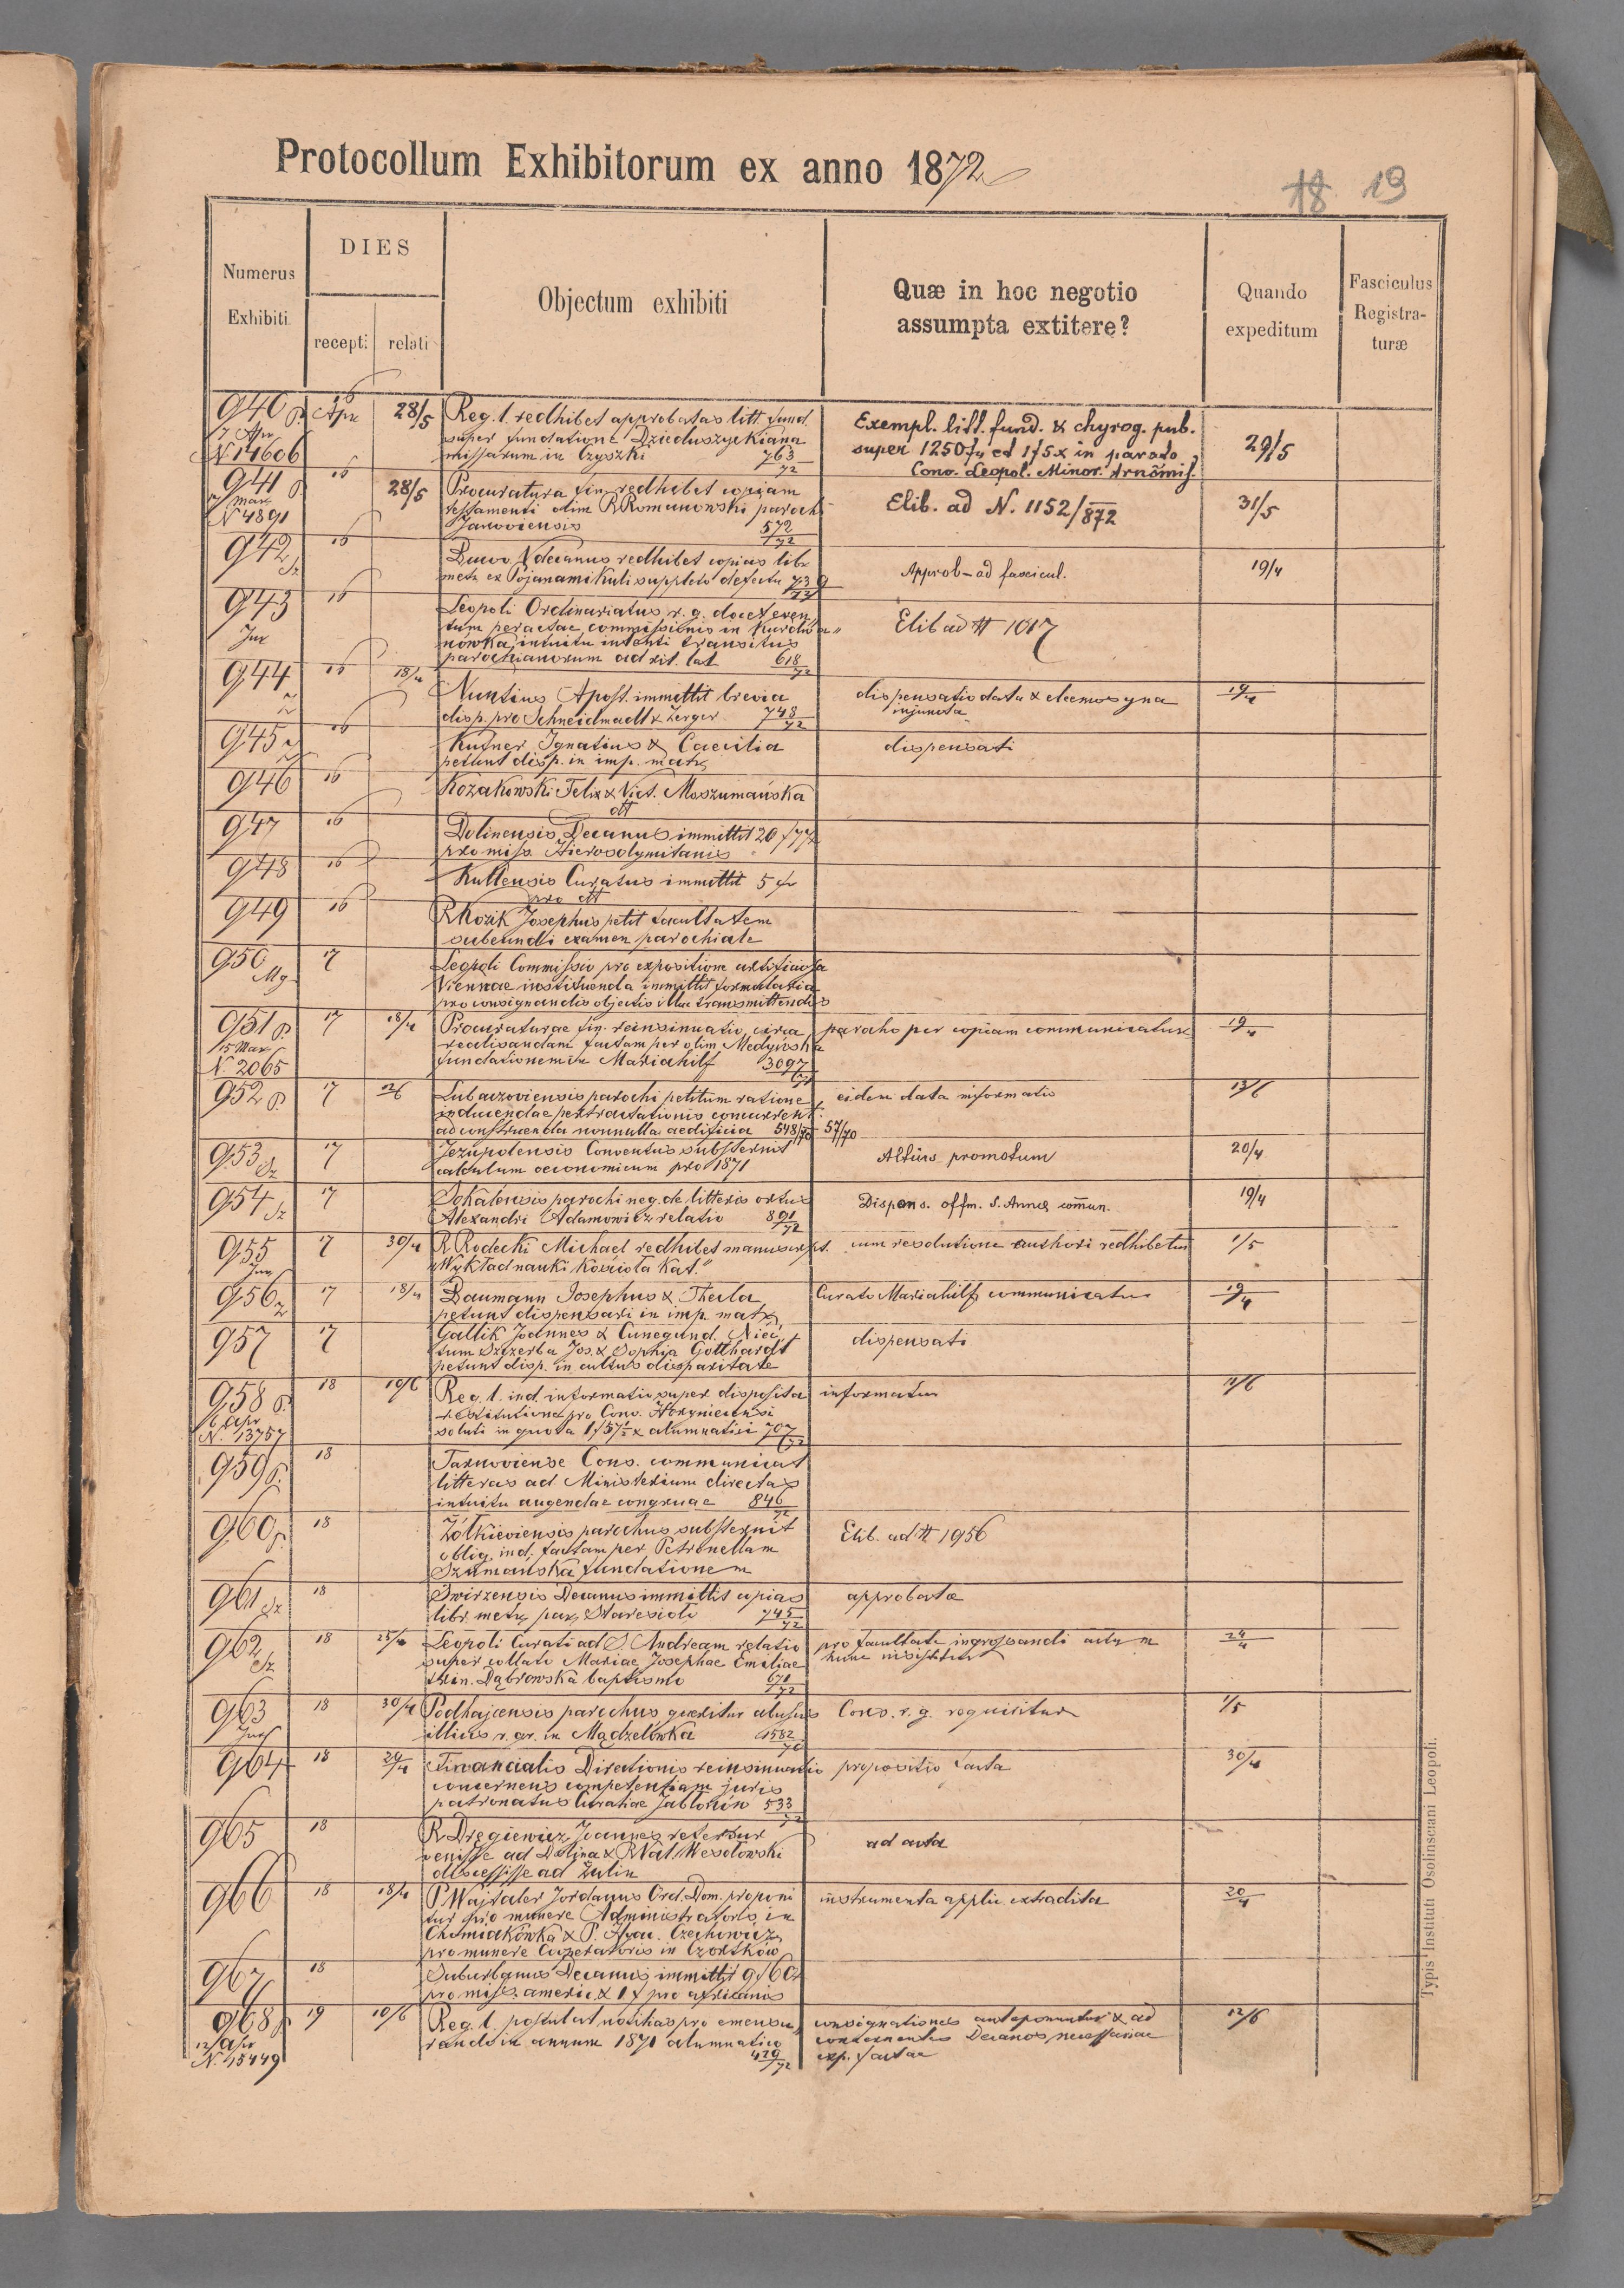 Protocollum Exhibitorum ex anno 1872
18 19
Numerus Exhibiti
DIES
recepti relati
Objectum exhibiti
Quæ in hoc negotio assumpta extitere?
Quando expeditum
Fasciculus Registraturæ
940 P. 16 Apr 28/5 Reg. l. redhibet approbatas litt. fund. Exempl. litt. fund. & chyrog. pub. 29/5
7 Apr super fundatione Dzieduszyckiana super 1250 fl et 1 f 5 x in parato
N 14606 missarum in Czyszki 763/72 Conv. Leopol. Minor.
941 P 16 28/5 Procuratura fin. redhibet copiam Elib. ad N. 1152/872 31/5
Mar testamenti olim R Romanowski paroch
N 4891 Janoviensis 572/72
942 Sz 16 Bucov. decanus redhibet copias libr Approb ad fascicul. 19/4
metr ex Pojanamikuli suppleto defectu 739/72
943 16 Leopoli Ordinariatus r. g. docet even Elib ad # 1017
Jur tum peractae commissionis in Kurdwa
nówka intuitu intenti transitus
parochianorum ad rit. lat 618/72
944 16 18/4 Nuntius Apost. immittit brevia dispensatio data & eleemosyna 19/4
disp. pro Schneidmadl & Zerger 748/72 injuncta
945 16 Kufner Ignatius & Caecilia dispensati
petunt disp. in imp. matr
946 16 Kozakowski Felix & Vict. Moszumańska
dt
947 16 Dolinensis Decanus immittit 20 f 77 x
pro miss. Hierosolymitanis
948 16 Kuttensis Curatus immittit 5 fr
pro dt
949 16 R Kozik Josephus petit facultatem
subeundi examen parochiale
950 Mg 17 Leopoli Commissio pro expositione artificiosa
Viennae instituenda immittit formularia
pro consignandis objectis illuc transmittendis
951 P. 17 18/4 Procuraturae fin. reinsinuatio circa parocho per copiam communicatur 19/4
15 Mar realisandam factam per olim Medyńska
N. 2065 fundationem in Mariahilf 3097/71
952 P. 17 Lubaczoviensis parochi petitum ratione eidem data informatio 13/6
inducendae pertractationis concurrent.
ad construenda nonnulla aedificia 548/70 57/70
953 Sz 17 Jezupolensis Conventus substernit Altius promotum 20/4
calculum oeconomicum pro 1871
954 Sz 17 Sokalensis parochi neg. de litteris ortus Dispens. offm. S. Annæ com̄un. 19/4
Alexandri Adamowicz relatio 891/72
955 17 30/4 R Rodecki Michael redhibet manuscript. cum resolutione authori redhibetur 1/5
Jur „Wykład nauki Kościoła Kat.”
956 17 18/4 Baumann Josephus & Thecla Curato Mariahilf communicatur 19/4
petunt dispensari in imp. matr
957 17 Gallik Joannes & Cunegund. Nici, dispensati
tum Szczerba Jos. & Sophia Gotthardt
petunt disp. in cultus disparitate
958 P. 18 10/6 Reg. l. ind. informatio super disposita informatur 12/6
6 Apr restitutione pro Conv. Horyniecensi
N. 13757 soluti in quota 1 f 57½ x alumnatici 707/72
959 P. 18 Tarnoviense Cons. communicat
litteras ad Ministerium directas
intuitu augendae congruae 846/72
960 P. 18 Żółkieviensis parochus substernit Elib. ad # 1956
oblig. ind. factam per Petronellam
Szumańska fundationem
961 Sz 18 Swirzensis Decanus immittit copias approbatæ
libr. metr. par. Staresioli 745/72
962 Sz 18 25/4 Leopoli Curati ad S. Andream relatio pro facultate ingrossandi actum 24/4
super collato Mariae Josephae Emiliae hunc insistitur
trin. Dąbrowska baptismo 671/72
963 18 30/4 Podhajcensis parochus queritur abusus Cons. r. g. requiritur 1/5
Jur illius r. gr. in Mądzelówka 1582/70
964 18 29/4 Financialis Directionis reinsinuatio propositio facta 30/4
concernens competentiam juris
patronatus Curatiae Jabłonów 533/72
965 18 R Dręgiewicz Joannes refertur ad acta
venisse ad Dolina & R Val. Wesołowski
discessisse ad Żulin
966 18 18/4 P. Wajtaler Jordanus Ord. Dom. proponi instrumenta applic. extradita 20/4
tur pro munere Administratoris in
Chomiakówka & P. Hyac. Czechowicz
pro munere Cooperatoris in Czortków
967 18 Suburbanus Decanus immittit 9 f 60 x
pro miss. americ. & 1 f pro africanis
968 P 19 10/6 Reg. l. postulat notitias pro emensu consignationes anteponuntur & ad 12/6
12/Apr randis in annum 1871 alumnatico concernentes Decanos necessariae
N. 15449 429/72 exp. factae
Typis Instituti Ossolinsciani Leopoli.